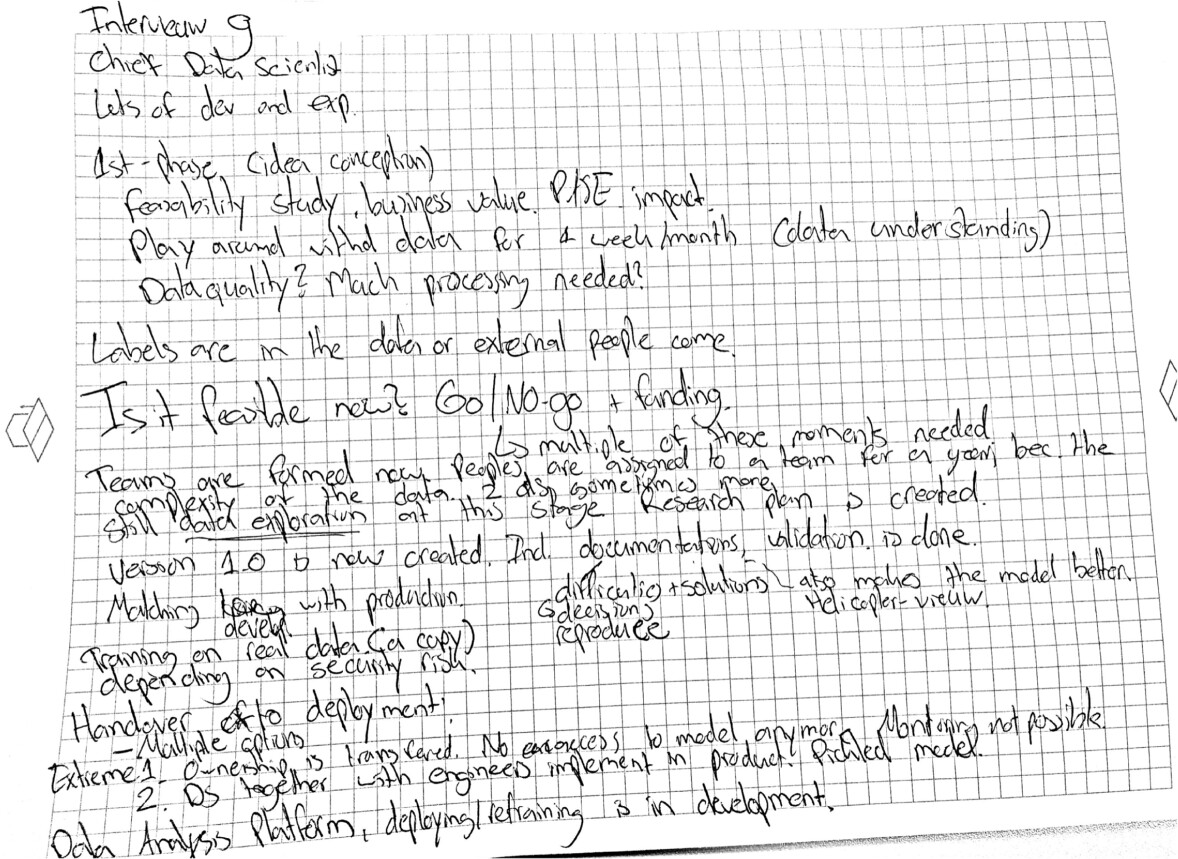 Intervieuw 9
Chief Data Scientist
Lots of dev and exp.
1st-phase (idea conception)
feasability study, business value. impact.
Play around with data for 1 week/month (data understanding)
Data quality? Mach processing needed?
Labels are in the data or external people come.
Is it feasible now? Go/No-go + funding.
↳ multiple of these moments needed
Teams are formed now. Peoples are assigned to a team for a year, bec. the
complexity of the data. 2 ds, sometimes more.
Still data exploration at this stage Research plan is created.
Version 1.0 is now created. Incl. documentations, validation. is done.
Matching with production.
develp.
difficulties + solutions
decisions
reproduce
also makes the model better.
Helicopter-vieuw.
Training on real data (a copy)
depending on security risk.
Handover to deployment:
- Multiple options
Extreme 1. Ownership is transfered. No access to model anymore. Monitoring not possible.
2. DS together with engineers implement in product. Pickled model.
Data Analysis Platform, deploying/retraining is in development.